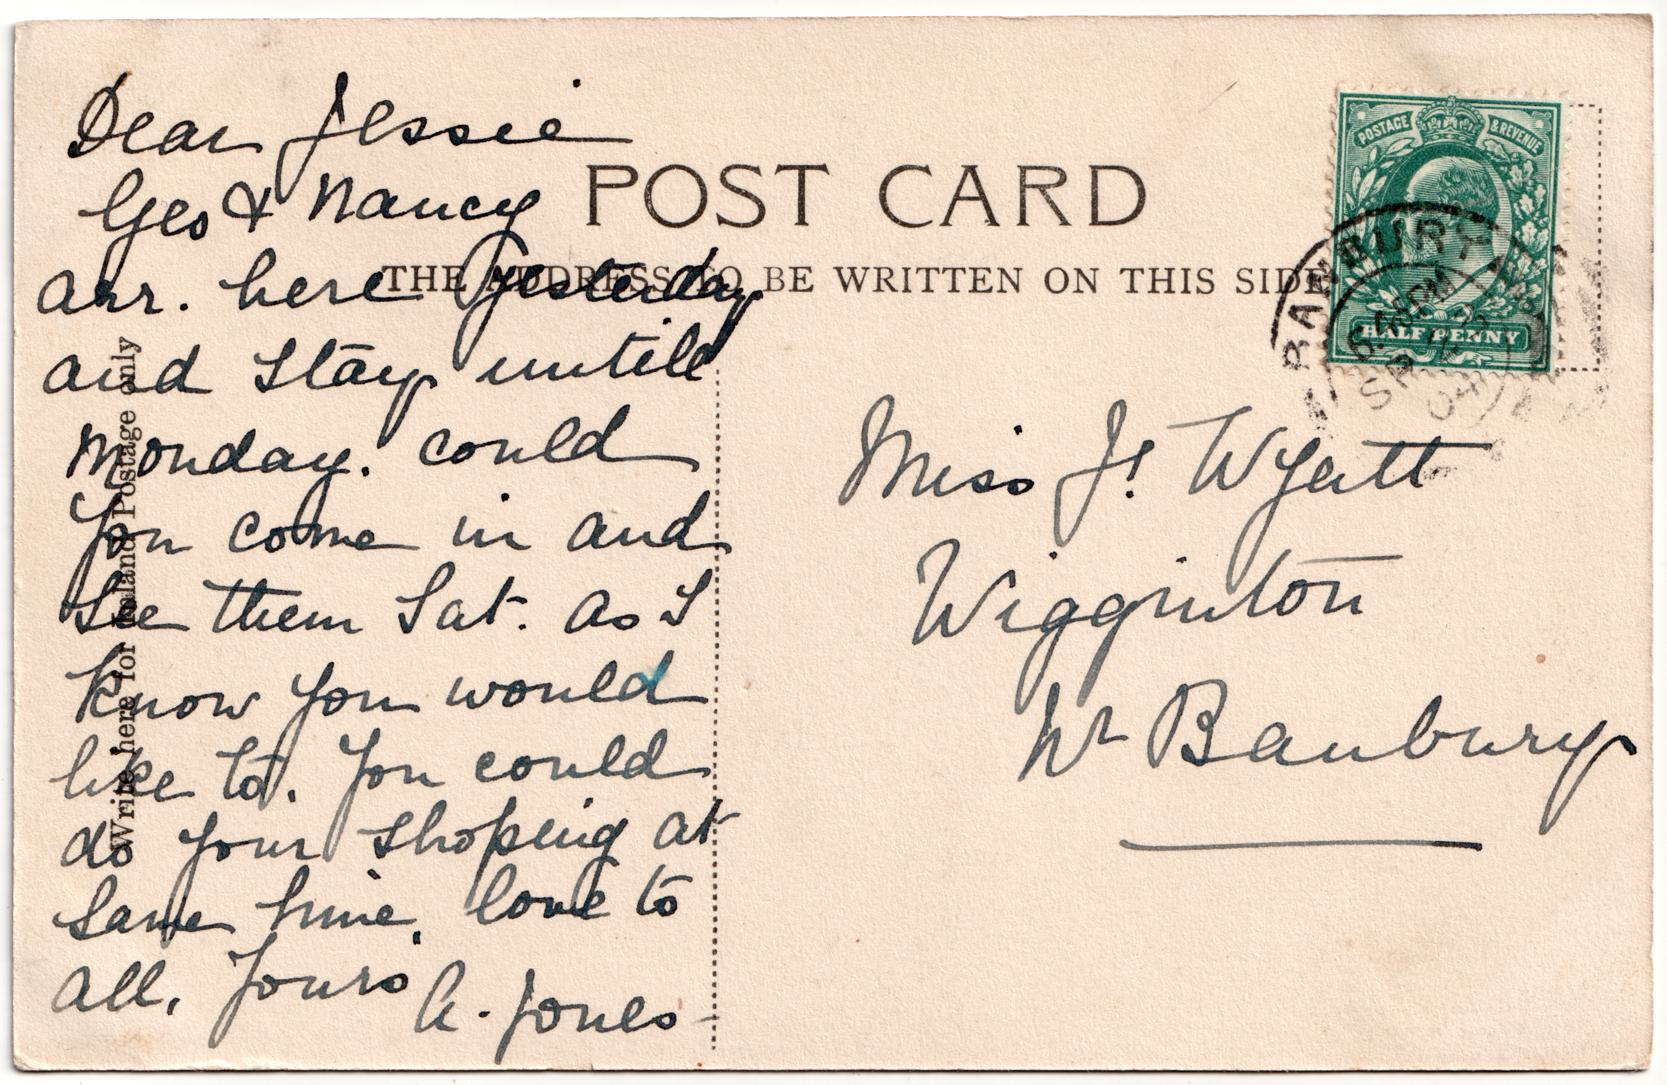 POST CARD
THE ADDRESS TO BE WRITTEN ON THIS SIDE
Write here for Inland Postage only
POSTAGE & REVENUE
HALF PENNY
BANBURY
SP
04
Dear Jessie
Geo & Nancy
arr. here yesterday
and stay untill
Monday. could
you come in and
see them Sat. as I
know you would
like to. You could
do your shoping at
same time. love to
all. Yours
A. Jones
Miss J. Wyatt
Wigginton
Nr Banbury